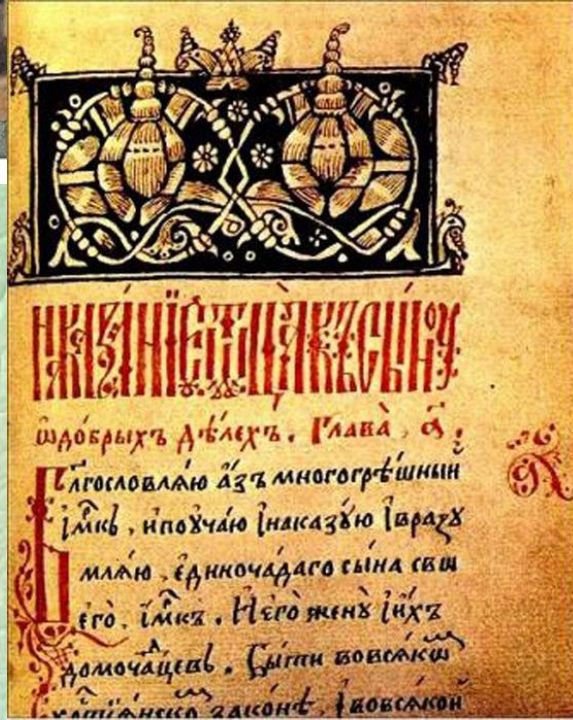 Наказаніе ѿ отца къ сыну
ѡ добрыхъ дѣлехъ. Глава, а҃.
Благословляю а́зъ многогрѣшныи
і҆мкъ, и поꙋча́ю і҆наказꙋю і҆вразꙋ
мля́ю, е҆диночадаго сы́на свѡ
его̀, і҆мкъ. И е҆го̀ женꙋ̀ і҆ и҆хъ
домоча́дцевъ. Бы́ти во всякѡ
христїянско законѣ, І во всякои